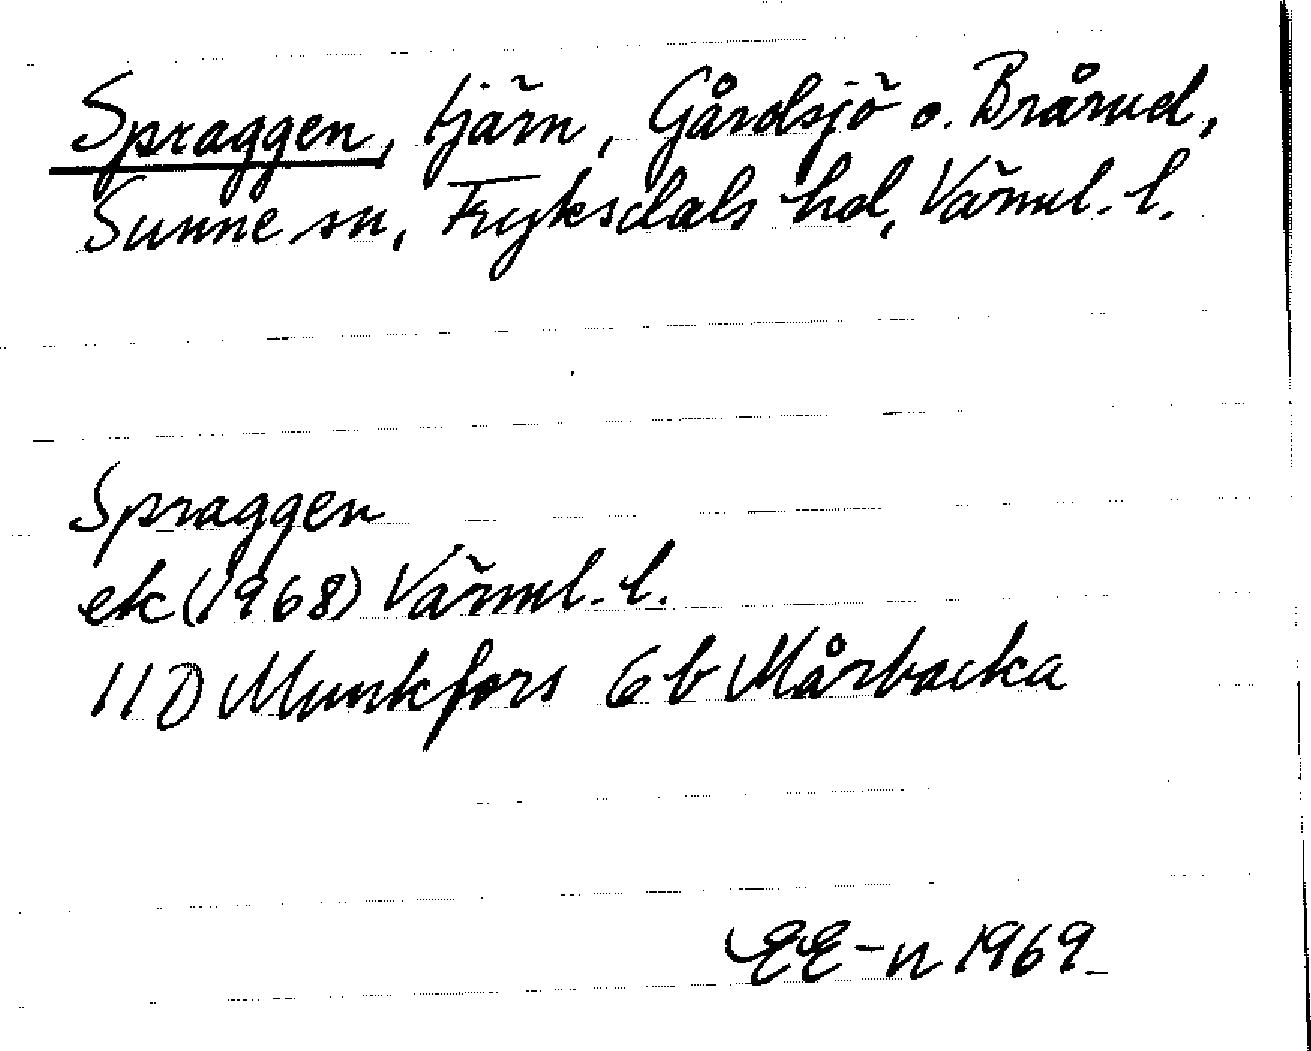 Spraggen, tjärn, Gårdsjö o. Brårud,
Sunne sn, Fryksdals hd, Värml. l.
Spraggen
ek (1968) Värml. l.
11D Munkfors 6b Mårbacka
EE-n 1969